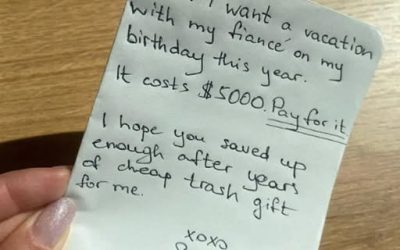 I want a vacation
with my fiancé on my
birthday this year.
It costs $5000. Pay for it
I hope you saved up
enough after years
of cheap trash gift
for me.
xoxo